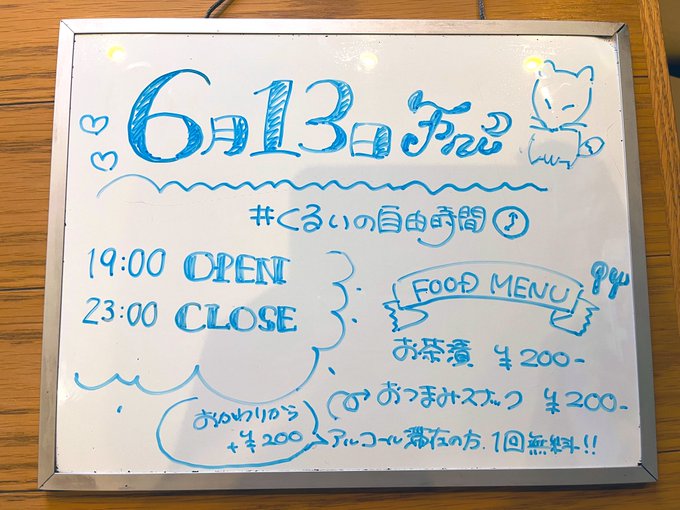 6月13日 Fri
#くるいの自由時間
19:00 OPEN
23:00 CLOSE
FOOD MENU
お茶漬 ¥200-
おつまみスナック ¥200-
おかわりから
+¥200
アルコール滞在の方、1回無料!!